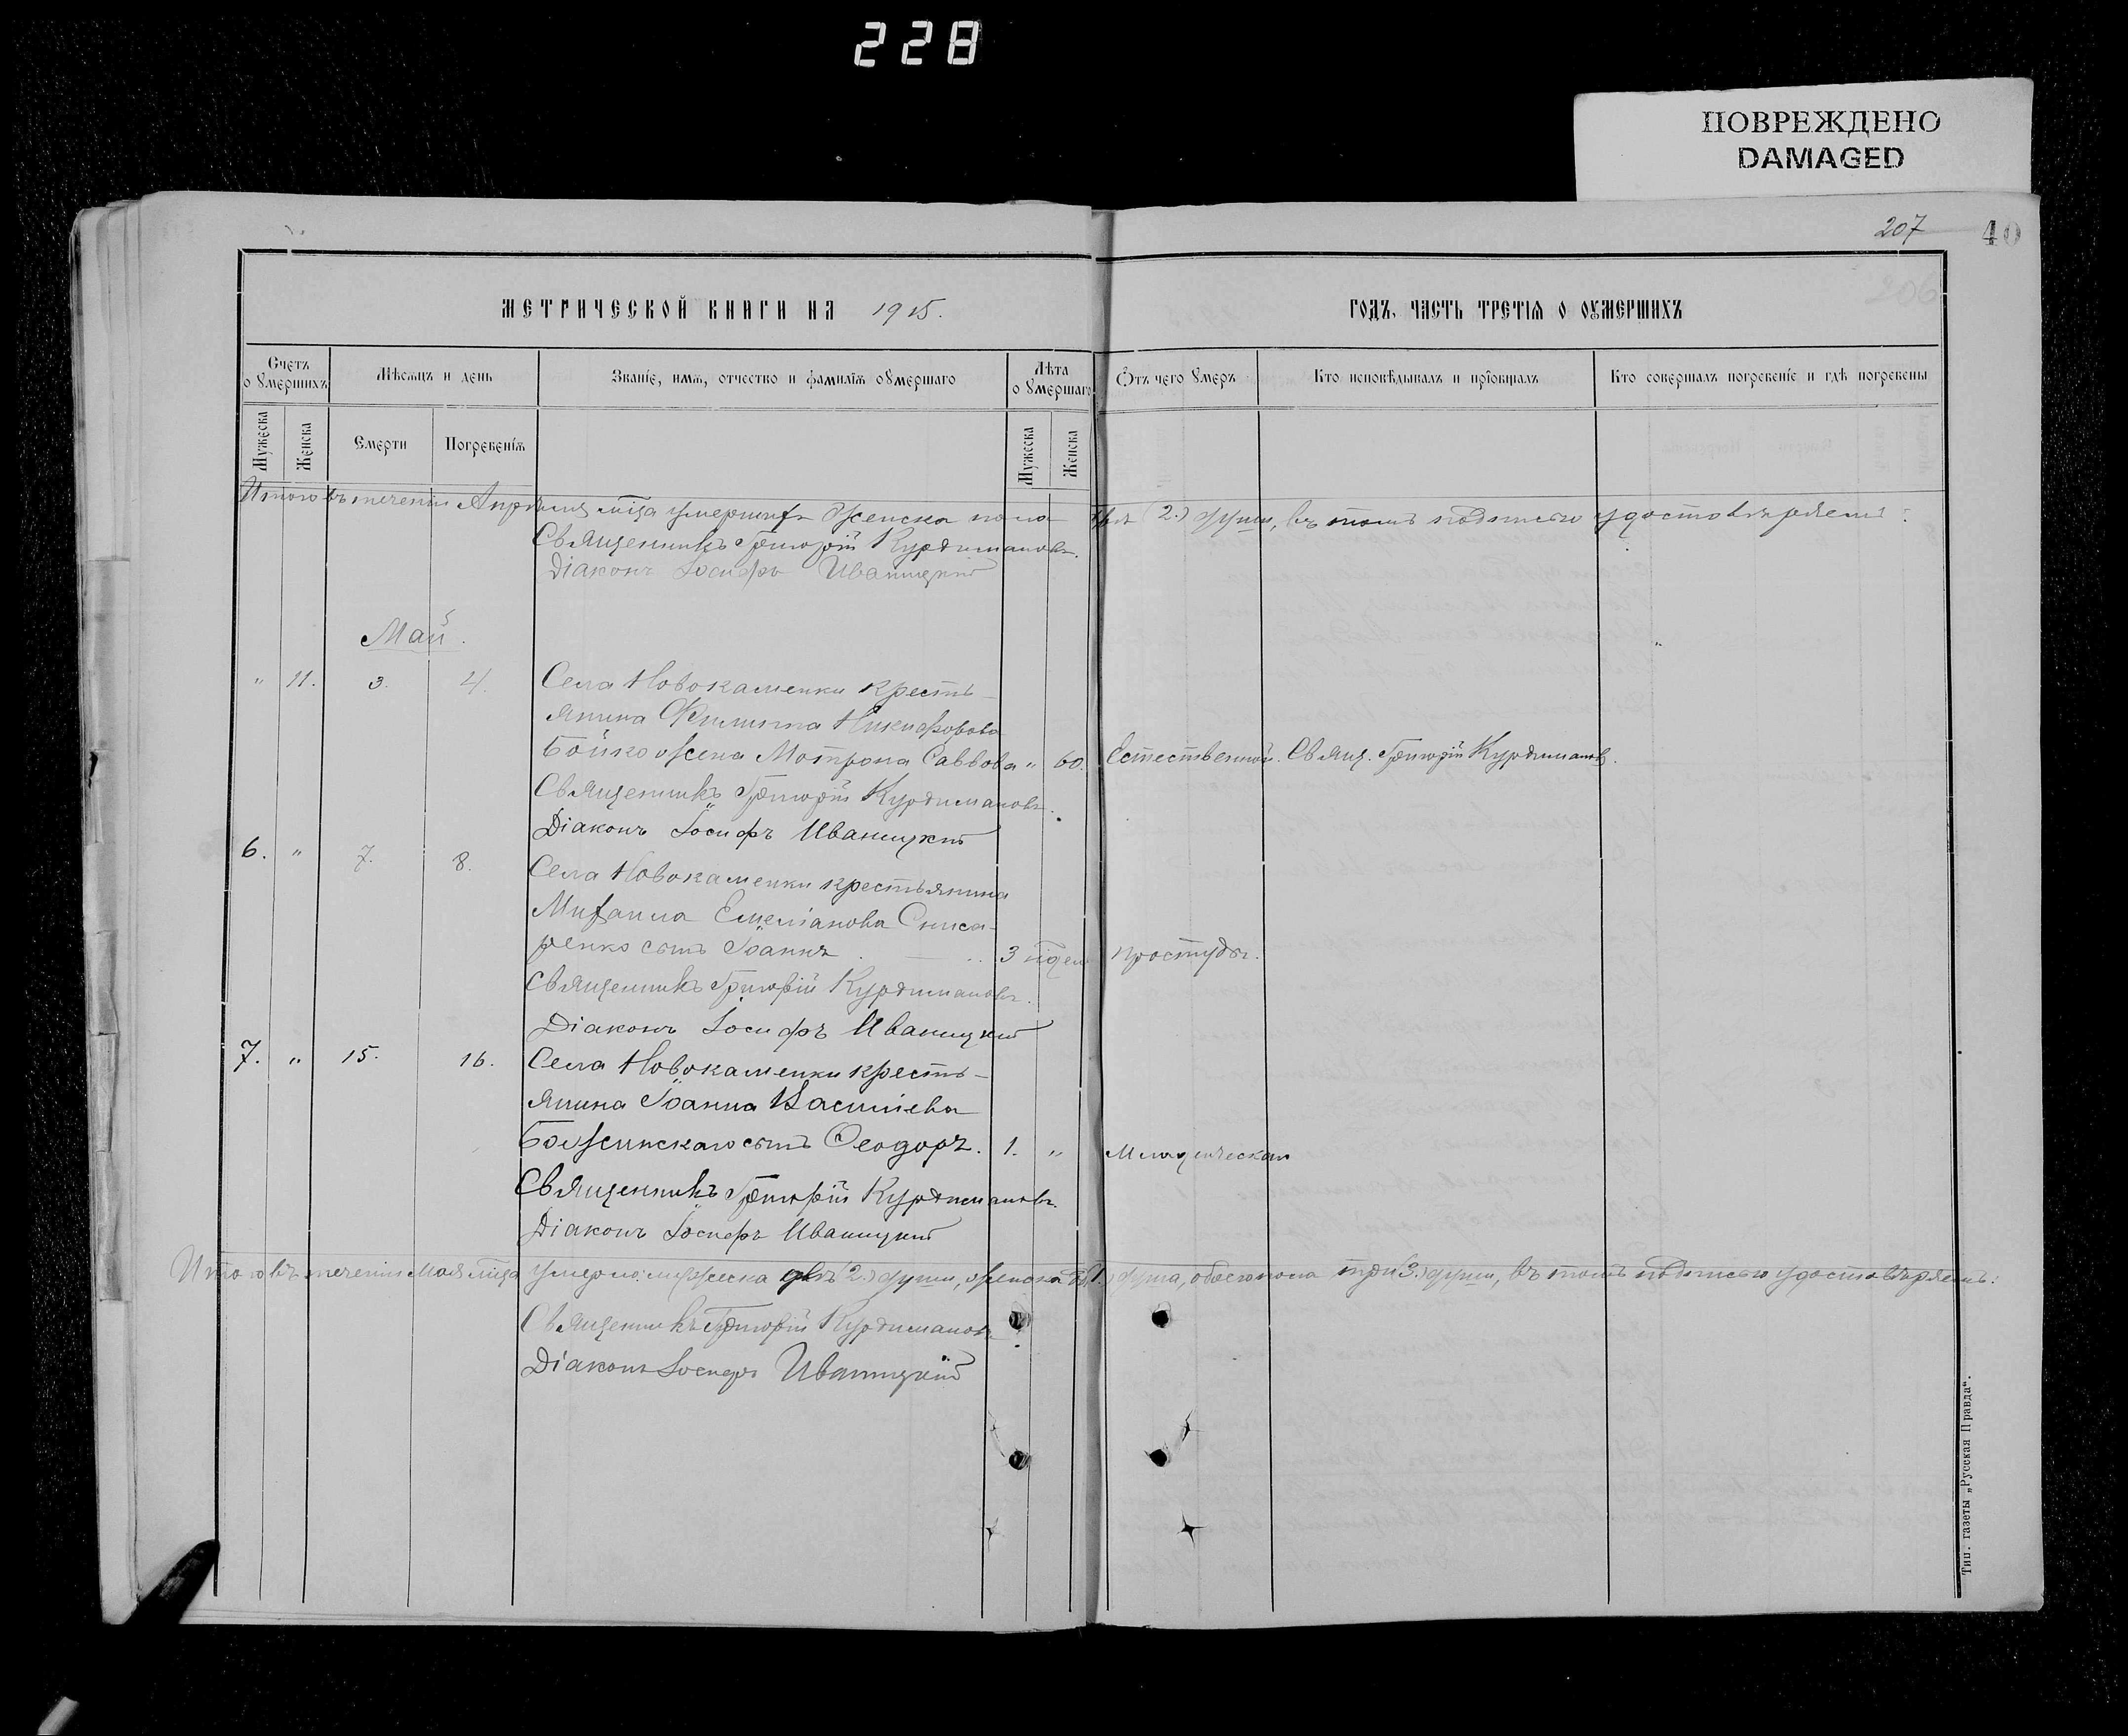 228
ПОВРЕЖДЕНО
DAMAGED
207 40
206
МЕТРИЧЕСКОЙ КНИГИ НА 1915.
ГОДЪ, ЧАСТЬ ТРЕТІѦ О ОУМЕРШИХЪ
Счетъ о Ꙋмершихъ
Мѣсѧцъ и день
Званіе, имѧ, отчество и фамиліѧ оꙊмершаго
Лѣта оꙊмершаго
Ѿтъ чего Ꙋмеръ
Кто исповѣдывалъ и пріобщалъ
Кто совершалъ погребеніе и гдѣ погребены
Мужеска
Женска
Смерти
Погребеніѧ
Мужеска
Женска
Итого въ теченіи Апрѣля м̃ца умершихъ женска пола двѣ (2.) души, въ томъ подписью удостовѣряемъ:
Священникъ Григорій Курдимановъ.
Діаконъ Іосифъ Иваницкій
Май.
" 11. 3. 4. Села Новокаменки кресть-
янина Филиппа Никифорова
Бойко жена Мотрона Саввова " 60. Естественной. Свящ. Григорій Курдимановъ.
Священникъ Григорій Курдимановъ.
Діаконъ Іосифъ Иваницкій
6. " 7. 8. Села Новокаменки крестьянина
Михаила Емеліанова Слиса-
ренко сынъ Іоаннъ 3 нѣдел простуды.
Священникъ Григорій Курдимановъ.
Діаконъ Іосифъ Иваницкій
7. " 15. 16. Села Новокаменки кресть-
янина Іоанна Василіева
Божинскаго сынъ Ѳеодоръ. 1. " Младенческая
Священникъ Григорій Курдимановъ.
Діаконъ Іосифъ Иваницкій
Итого въ теченіи Мая м̃ца умерло: мужеска двѣ (2.) души, женска 1.) душа, обоего пола три 3.) души, въ томъ подписью удостовѣряемъ:
Священникъ Григорій Курдимановъ
Діаконъ Іосифъ Иваницкій
Тип. газеты „Русская Правда“.